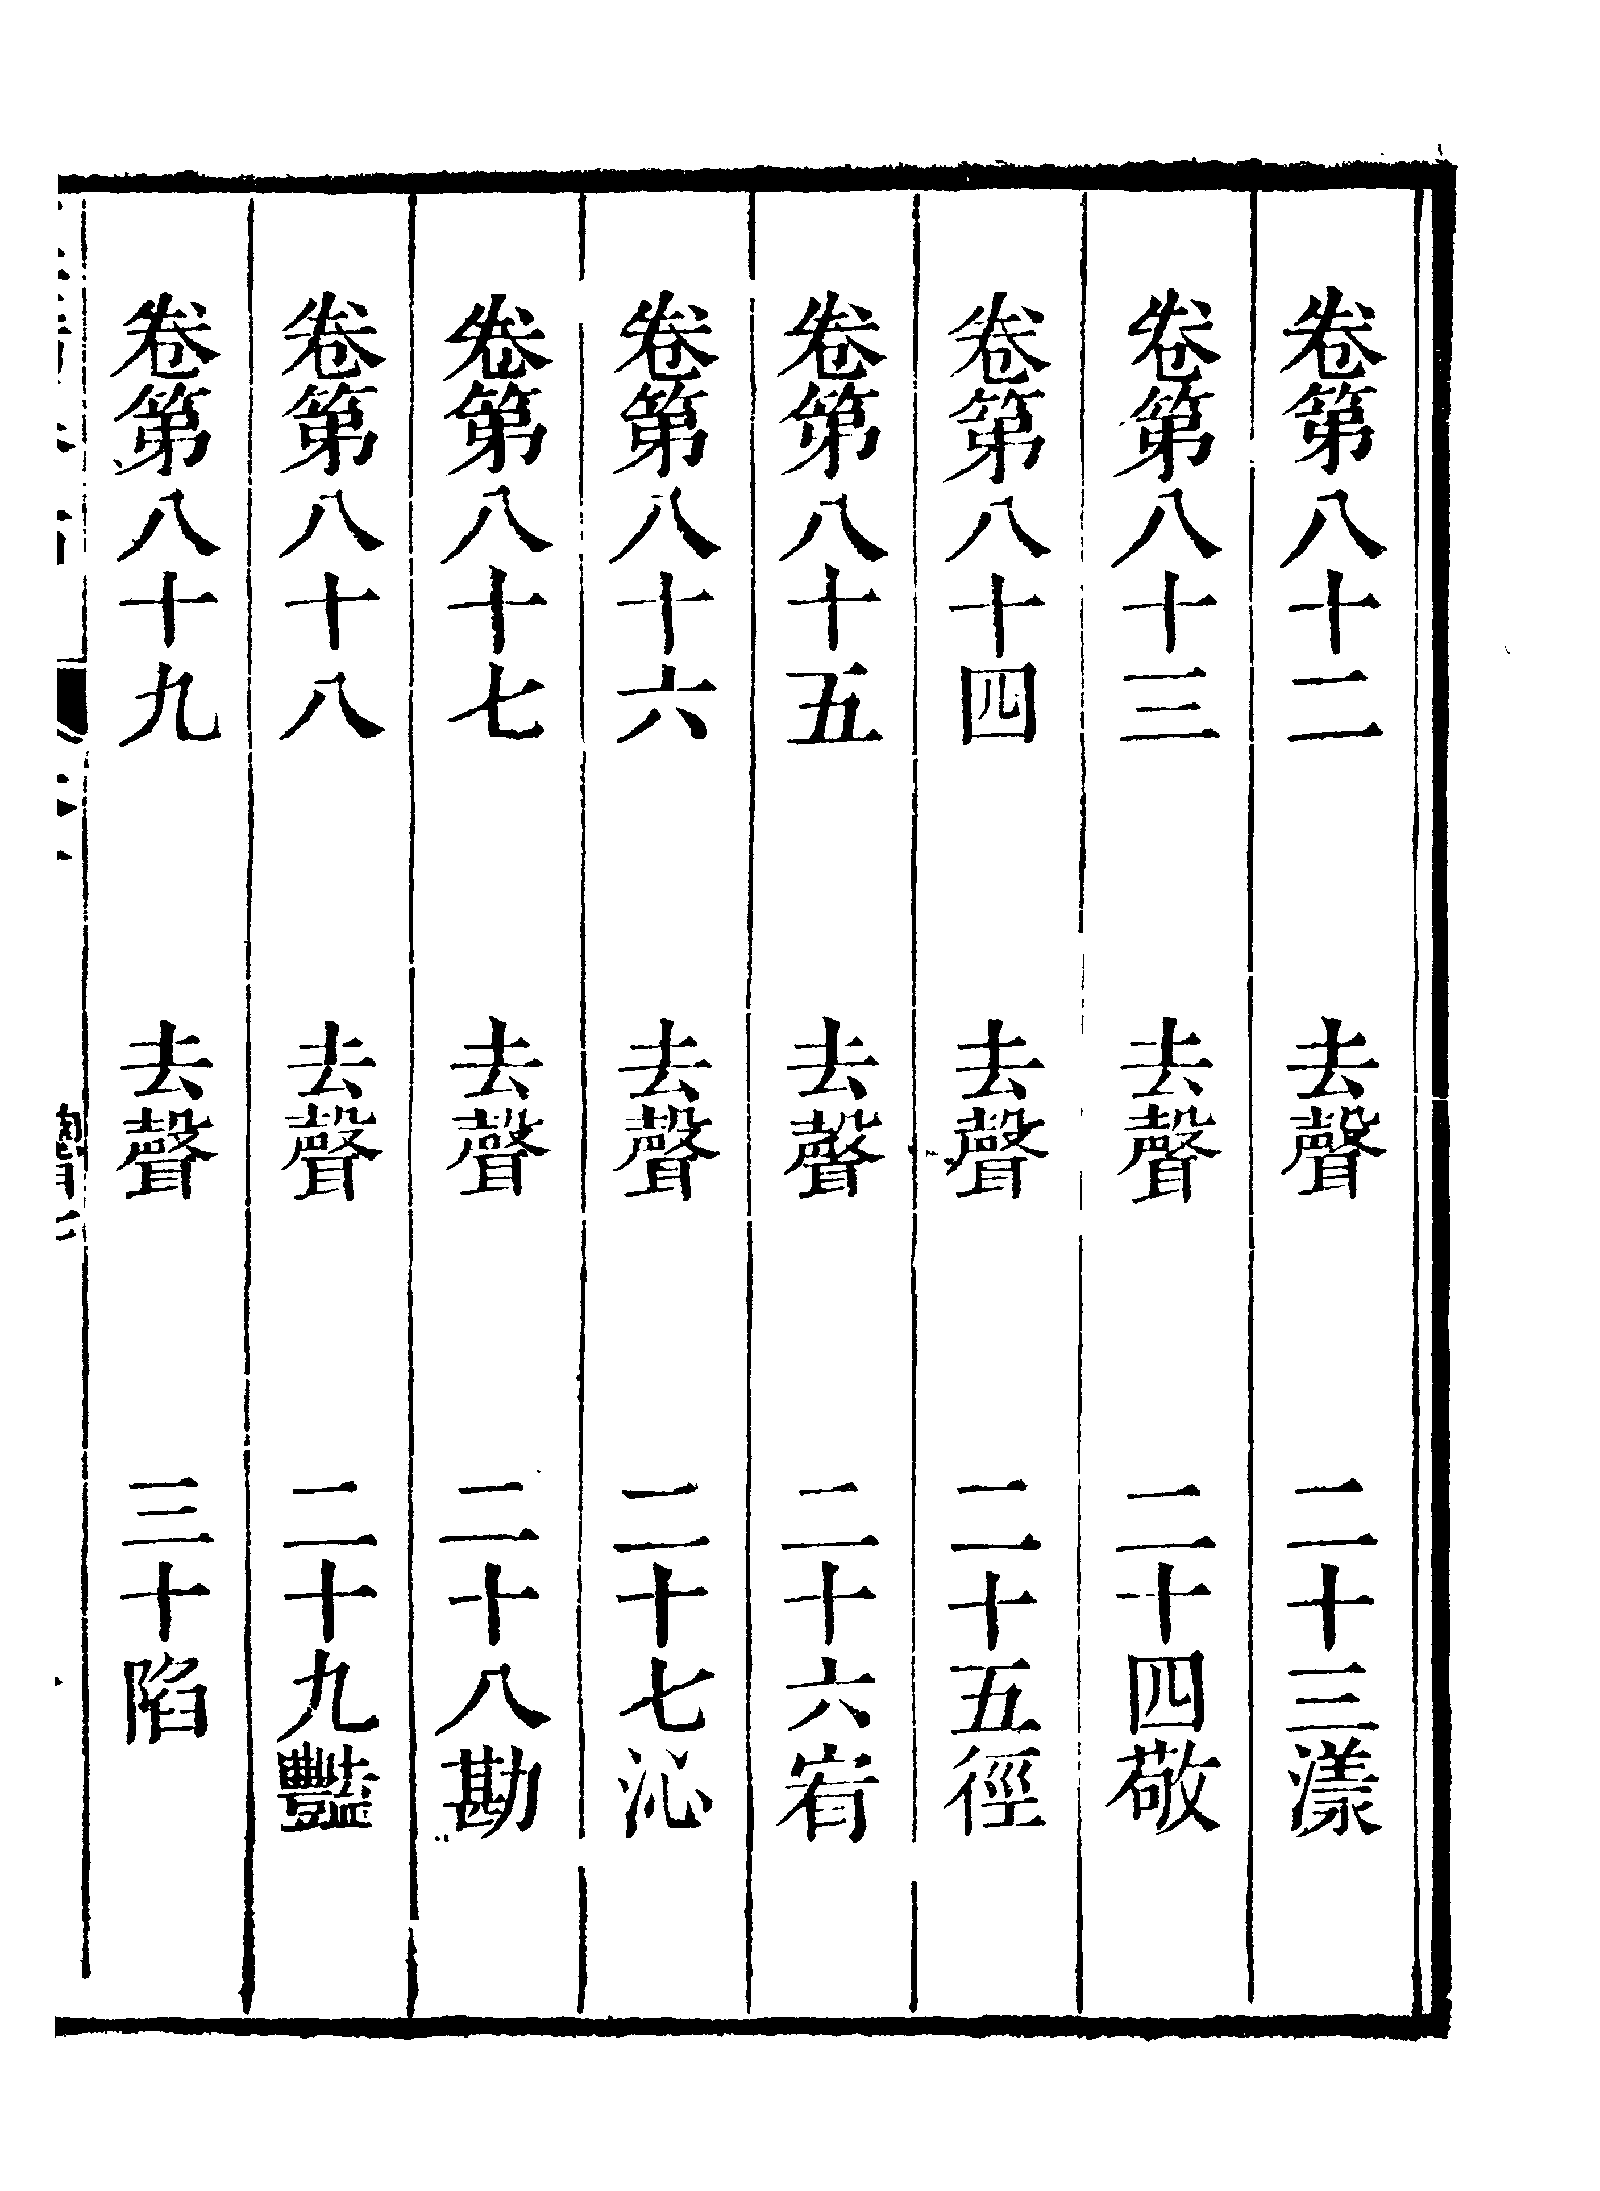 卷第八十二 去聲 二十三漾
卷第八十三 去聲 二十四敬
卷第八十四 去聲 二十五徑
卷第八十五 去聲 二十六宥
卷第八十六 去聲 二十七沁
卷第八十七 去聲 二十八勘
卷第八十八 去聲 二十九豔
卷第八十九 去聲 三十陷